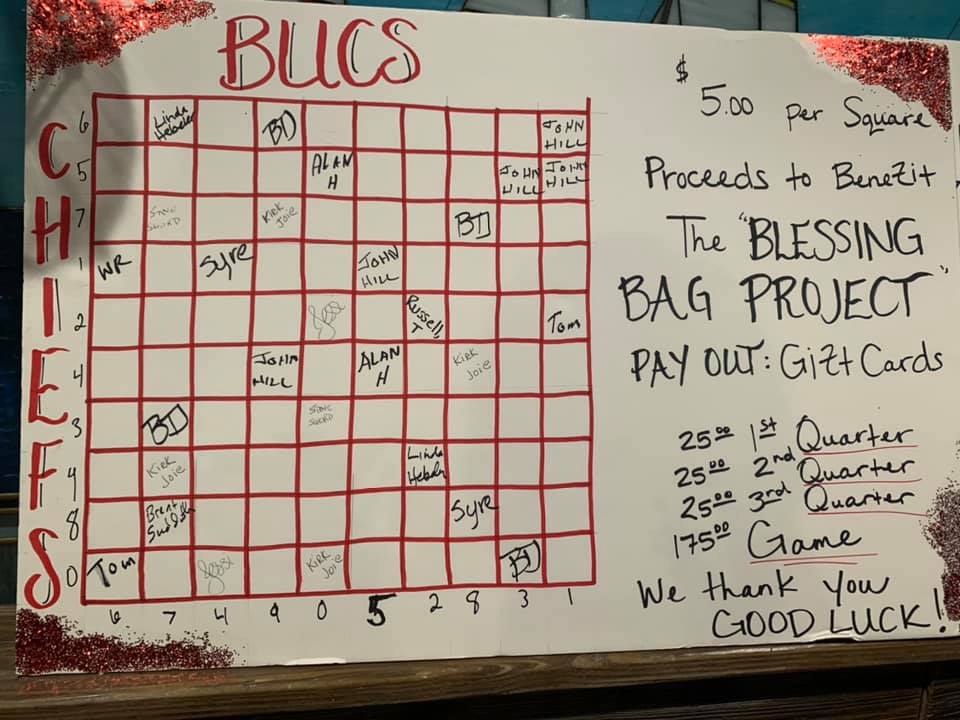 BUCS
CHIEFS
6 Linda Hebeler BD JOHN HILL
5 ALAN H JOHN HILL JOHN HILL
7 Kirk Joie BD
1 WR Syre JOHN HILL
2 Jessi Russell T Tom
4 JOHN HILL ALAN H Kirk Joie
3 BD
4 Kirk Joie Linda
8 Brent Syre
0 Tom Jessi Kirk Joie BD
6 7 4 9 0 5 2 8 3 1
$ 5.00 per Square
Proceeds to Benefit
The "BLESSING
BAG PROJECT"
PAY OUT: Gift Cards
25.00 1st Quarter
25.00 2nd Quarter
25.00 3rd Quarter
175.00 Game
We thank you
GOOD LUCK!